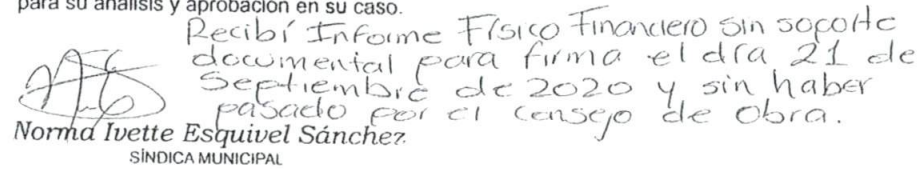 para su análisis y aprobación en su caso.
Recibí Informe Físico Financiero sin soporte
documental para firma el día 21 de
Septiembre de 2020 y sin haber
pasado por el Consejo de Obra.
Norma Ivette Esquivel Sánchez
SÍNDICA MUNICIPAL